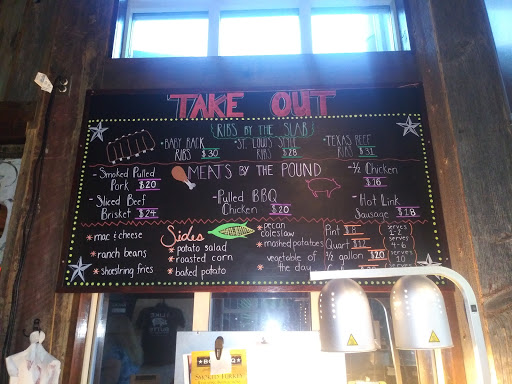 TAKE OUT
{RIBS BY THE SLAB}
•BABY BACK RIBS $30
•ST. LOUIS STYLE RIBS $28
•TEXAS BEEF RIBS $31
MEATS BY THE POUND
- Smoked Pulled Pork $20
- Sliced Beef Brisket $24
-Pulled BBQ Chicken $20
-½ Chicken
- Hot Link Sausage $18
Sides
* mac & cheese
* ranch beans
* shoestring fries
* potato salad
* roasted corn
* baked potato
* pecan coleslaw
* mashed potatoes
* vegetable of the day
Pint
serves 1-2
Quart $12
serves 4-6
½ gallon $20
serves 10